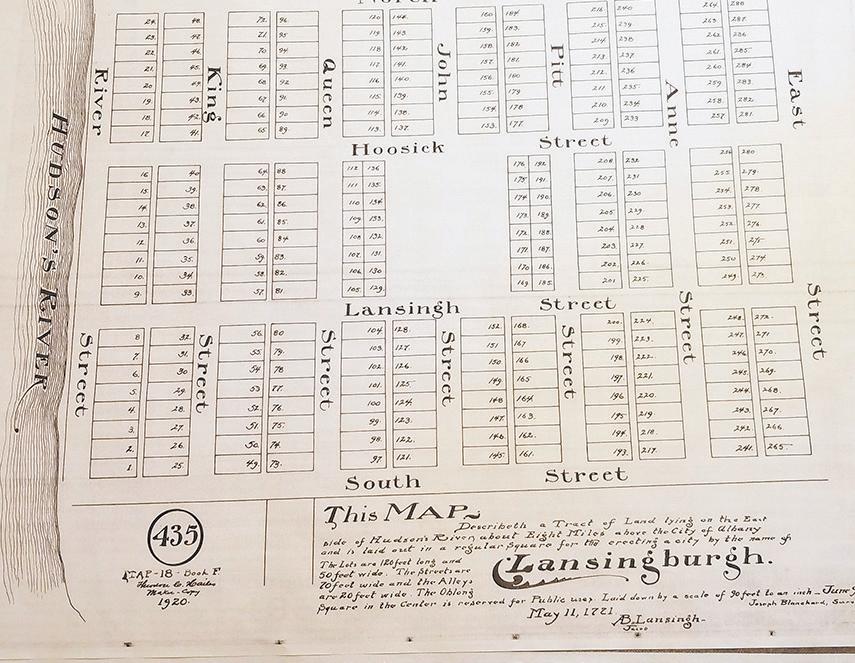 North
24. 48. 72. 96. 120 144. 160 184. 216 240 264. 288
23. 47. 71. 95 119 143. 159. 183. 215. 239 263. 287
22. 46 70 94 118 142. 158. 182. 214. 238 262. 286
21. 45. 69. 93 117. 141. 157. 181. 213 237 261. 285.
20 44. 68 92 116 140. 156. 180 212. 236 260. 284
19. 43. 67 91 115. 139. 155 179 211. 235. 259. 283
18. 42. 66 90 114. 138. 154. 178 210. 234 258. 282
17. 41. 65 89. 113. 137. 153. 177. 209 233 257. 281.
River King Queen John Pitt Anne East
Hoosick Street
16 40 64. 88 112 136 176 192. 208. 232. 256 280
15. 39. 63. 87. 111 135. 175 191. 207. 231 255. 279.
14. 38. 62. 86 110 134 174 190. 206. 230 254. 278
13. 37. 61. 85. 109 133. 173. 189. 205. 229. 253. 277
12 36. 60 84 108 132. 172. 188. 204. 228 252. 276.
11. 35. 59. 83. 107. 131 171. 187. 203. 227. 251. 275.
10. 34. 58. 82. 106. 130 170. 186. 202. 226. 250 274.
9. 33. 57. 81. 105. 129. 169. 185 201 225. 249. 273.
Hudson's River
Lansingh Street
8 32. 56. 80 104. 128. 152. 168. 200. 224. 248. 272.
7. 31. 55. 79. 103. 127. 151 167. 199. 223. 247. 271
6. 30 54. 78 102. 126 150 166. 198. 222. 246 270.
5. 29. 53 77. 101. 125. 149. 165 197. 221. 245. 269.
4. 28. 52. 76. 100 124. 148 164 196. 220. 244. 268.
3. 27. 51. 75. 99. 123. 147. 163. 195 219. 243. 267.
2. 26. 50. 74. 98. 122. 146 162. 194. 218. 242. 266
1. 25. 49. 73. 97. 121. 145 161. 193. 217. 241. 265.
Street Street Street Street Street Street Street
South Street
This MAP
Describeth a Tract of Land lying on the East
side of Hudson's River about Eight Miles above the City of Albany
and is laid out in a regular Square for the erecting a city by the name of
Lansingburgh.
The Lots are 120 feet long and
50 feet wide. The Streets are
70 feet wide and the Alleys
are 20 feet wide. The Oblong
Square in the Center is reserved for Public uses. Laid down by a scale of 90 feet to an inch - June
Joseph Blanchard, Surv
May 11, 1771
AB. Lansingh-
435
MAP-18-Book F
Make-Copy
1920.